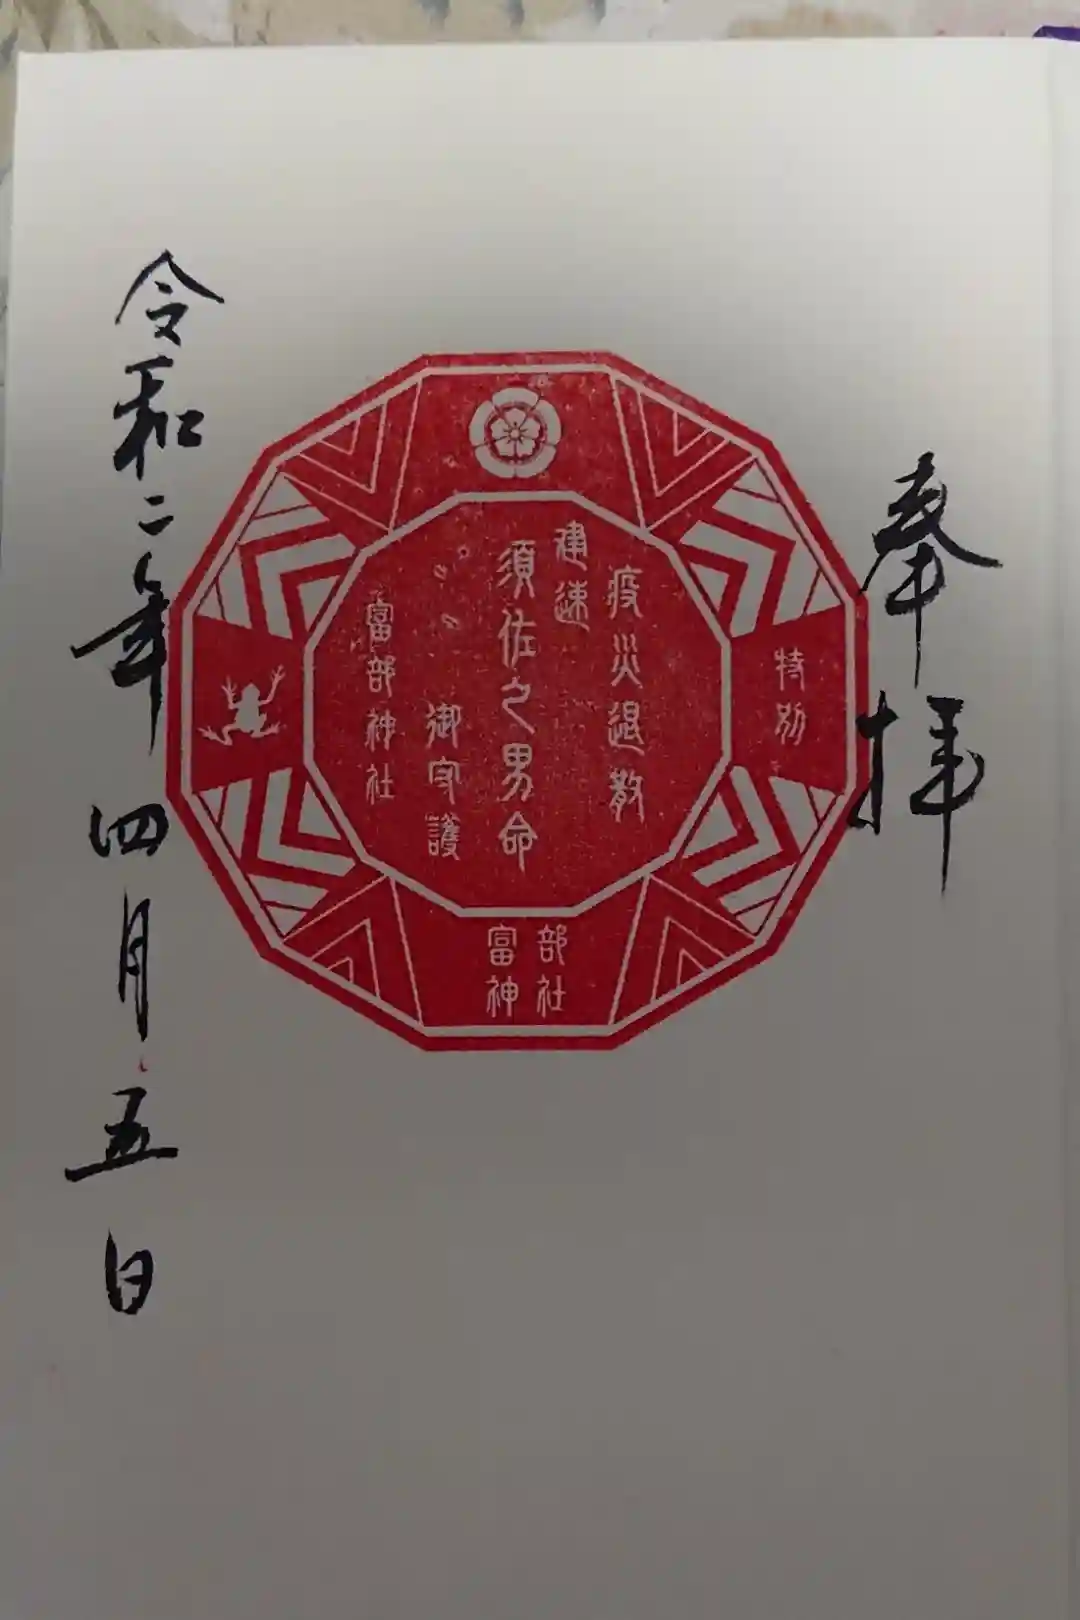 奉拝
特別
疫災退散
建速
須佐之男命
御守護
富部神社
部社
富神
令和二年四月五日